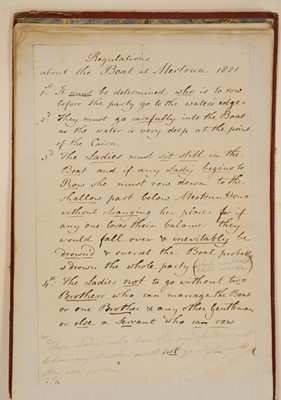 Regulations
about the Boat at Mertoun 1821
1st It must be determined who is to row
before the party go to the waters edge.
2d They must go carefully into the Boat
as the water is very deep at the point
of the Cairn.
3d The Ladies must sit still in the
Boat and if any Lady begins to
Row she must row down to the
shallow part below Mertoun House
without changing her place for if
any one loses their balance they
would fall over & inevitably be
drownd & overset the Boat probably
& drown the whole party
4th The Ladies not to go without two
Brothers who can manage the Boat
or one Brother & any other Gentleman
or else a Servant who can row
Ladies who have
must not go